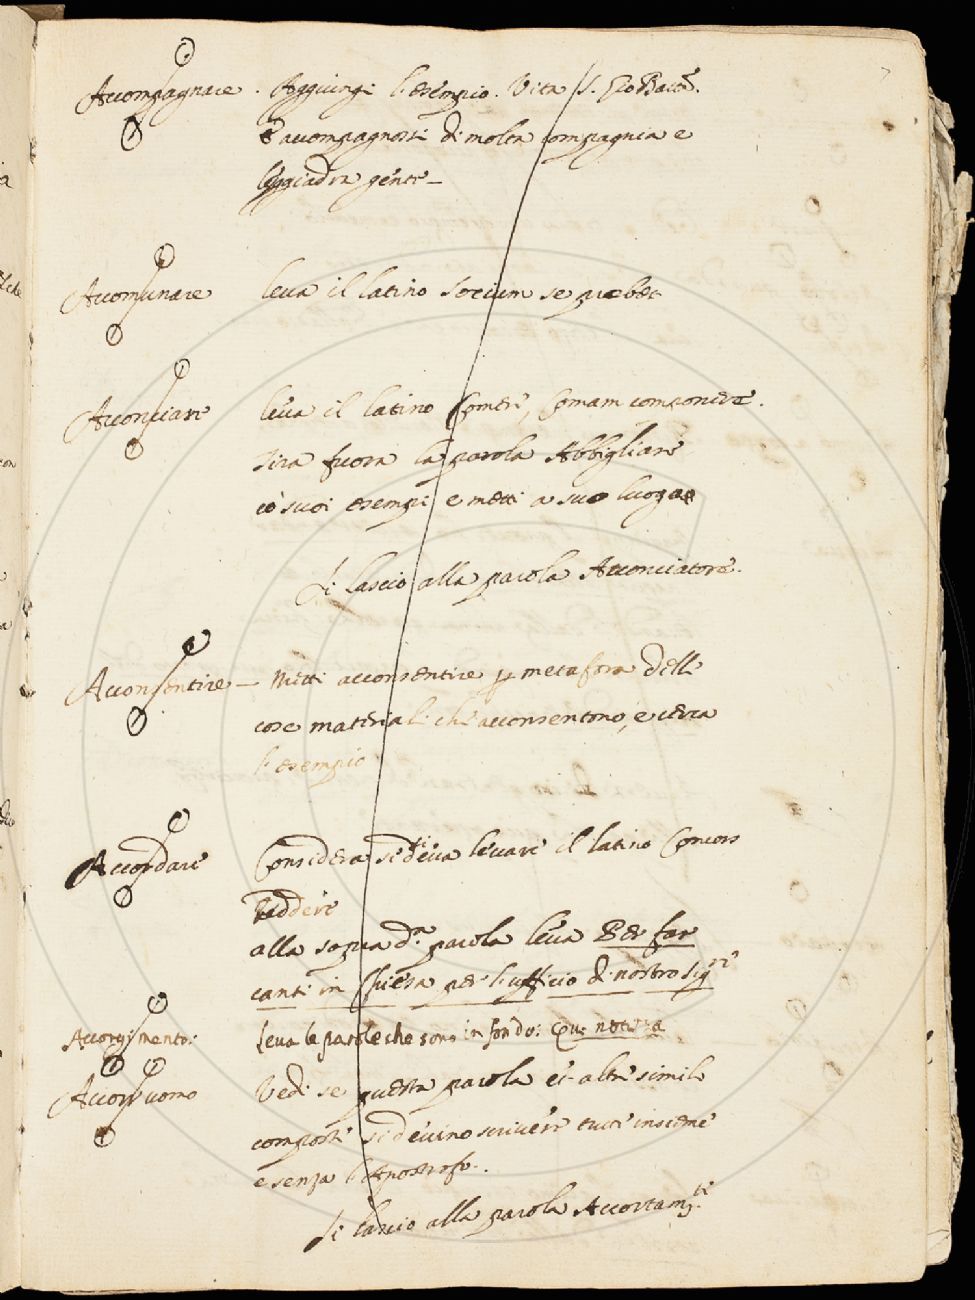 Accompagnare . Aggiungi l'esempio. Vita S. Gio Batt.
E accompagnossi di molta compagnia e
leggiadra gente –
Accomunare leva il latino socium se præbet
Acconciare leva il latino Comere, Comam componere.
tira fuora la parola Abbigliare
co suoi esempi e metti a suo luogo
Si lasciò alla parola Acconciatore.
Acconsentire – Metti acconsentire p metafora delle
cose materiali che acconsentono, e cerca
l'esempio
Accordare Considera se si deva levare il latino Concors
reddere
alla sopra d.a parola leva Per far
canti in Chiesa per l'ufficio di nostro Sig.re
Accorgimento: leva le parole che sono in fondo:
Accorr'uomo Vedi se questa parola et altre simili
composte si devino scrivere tutte insieme
e senza l'Apostrofo.
Si lasciò alla parola Accortam.te